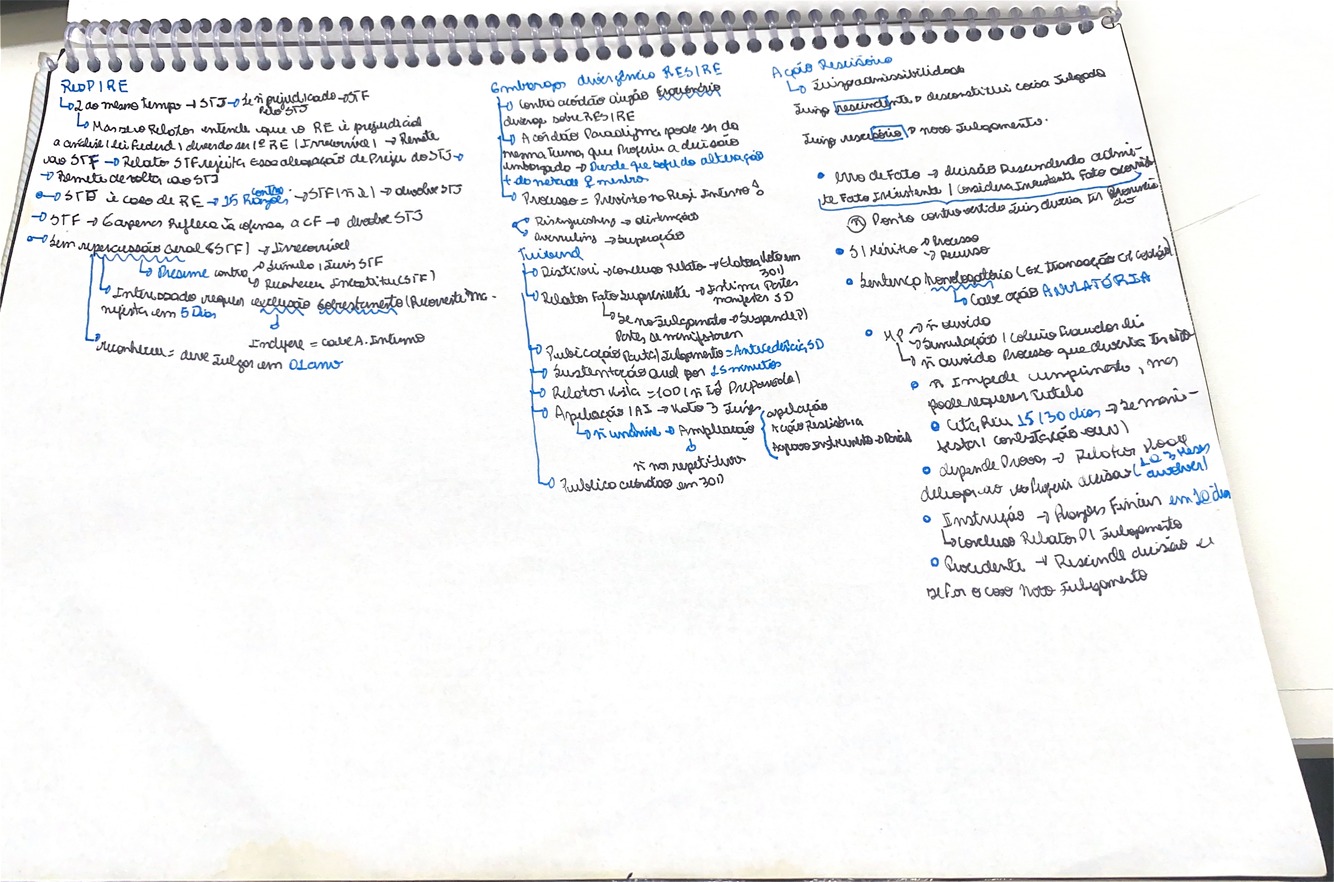 REsP | RE
2 ao mesmo tempo → STJ → Se ñ prejudicado → STF
pelo STJ
Mas se o Relator entende que o RE é prejudicial
a análise (Lei Federal) divendo ser 1º RE (Irrecorrível) → Remete
ao STF → Relator STF rejeita essa alegação de Preju do STJ →
→ Remete de volta ao STJ
STJ é caso de RE → 15 Razões → STF (ñ é) → devolve STJ
contra
STF → 6 apenas Reflexa Ia ofensa a CF → devolve STJ
Sem repercussão Geral (STF) → Irrecorrível
Presume contra → Súmula | Juris STF
→ Reconhecer Inconstitu (STF)
Interessado requer exclusão sobrestamento (Recorrente ma-
nifesta em 5 Dias
Indefere = cabe A. Interno
Reconhecer = deve Julgar em 01 ano
Embargos divergência RESIRE
Contra acórdão órgão Fracionário
diverge sobre RESIRE
Acórdão Paradigma pode ser da
mesma turma, que Proferiu a decisão
embargada → Desde que sofrido alteração
+ da metade membros
Processo = Previsto no Regi Interno
Distinguishing → distinção
overruling → Superação
Tribunal
Distribui → concluso Relator → Elabora Voto em
30D
Relator Fato Superveniente → Intima Partes
manifestar 5D
Se no Julgamento → Suspende P/
Partes se manifestarem
Publicação Pauta | Julgamento = Antecedência 5D
Sustentação oral por 15 minutos
Relator Vista = 10D (ñ tá Preparado)
Apelação | AI → Voto 3 Juízes
ñ unânime → Ampliação
apelação
Ação Rescisória
Agravo Instrumento → Parcial
ñ nos repetitivos
Publica acórdão em 30D
Ação Rescisória
Juízo admissibilidade
Juízo rescindente → desconstitui coisa Julgada
Juízo rescisório → novo Julgamento.
Erro de Fato → decisão Rescindenda admi-
te Fato Inexistente | considera Inexistente Fato ocorrido
ñ Ponto controvertido Juiz deveria ter Pronuncia
do
S/ Mérito → Processo
→ Recurso
Sentença Homologatória (ex Transação)
Cabe ação ANULATÓRIA
MP → ñ ouvido
→ Simulação | Colusão Fraudar lei
ñ ouvido Processo que deveria
ñ Impede cumprimento, mas
pode requerer Tutela
Cita, Réu 15 | 30 dias → Se mani-
festar (contestação)
depende Provas → Relator Pode
delegar ao Proferir decisão (1 a 3 Meses
devolver)
Instrução → Razões Finais em 10 dias
Concluso Relator P/ Julgamento
Procedente → Rescinde decisão e
se for o caso Novo Julgamento